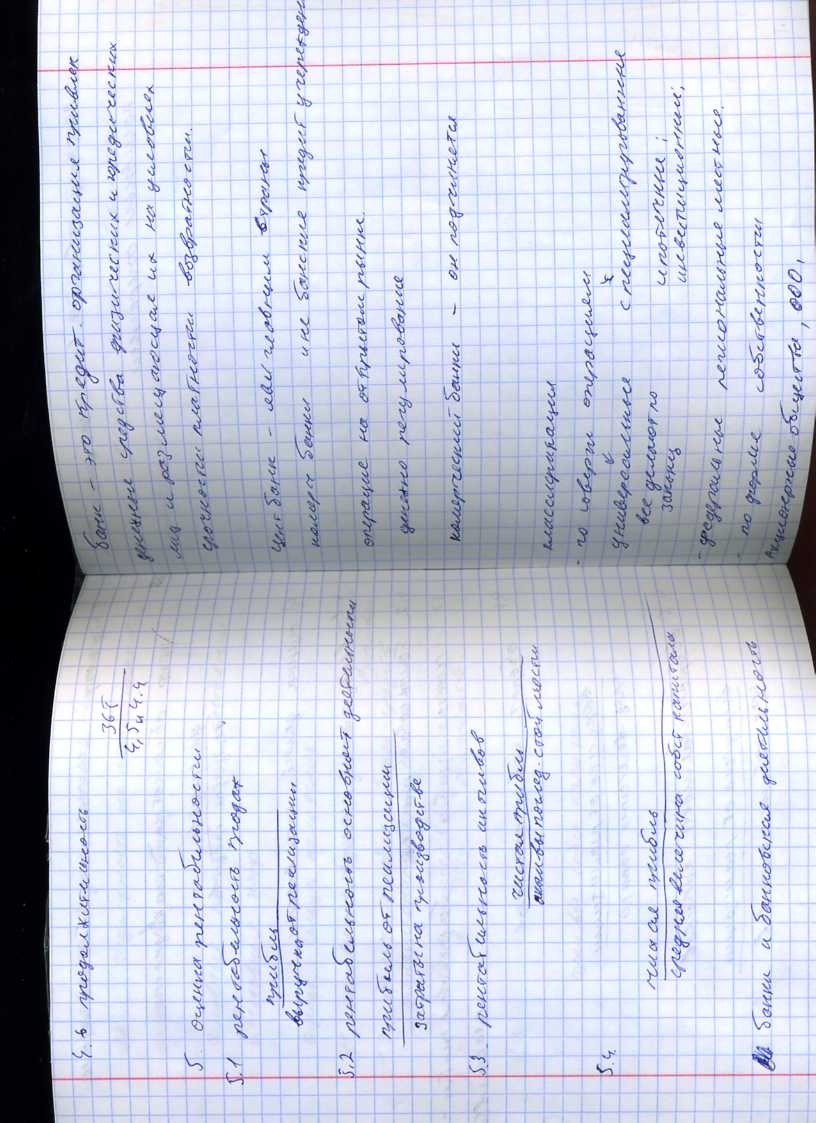 4.6 продолжительность
365
4,5 и 4.4
5. оценка рентабельности
5.1 рентабельность продаж
прибыль
выручка от реализации
5.2 рентабельность основной деятельности
прибыль от реализации
затраты на производство
5.3 рентабильность активов
чистая прибыль
послед. стоймости
5.4.
чистая прибыль
средняя величина собст капитала
банки и банковская диятильность
Банк - это кредит. организация привлек
средства физических и юредических
лиц и размещающие их на условиях
срочности платности возвратности.
Цент банк - явл главным страны
комерч банки и не банские кредит учережден
операцие на открытом рынке
регулирование
Комерческий банки - он подчиняется
классификации
- по операциям
универсальные специализированные
все делают по ипотечные;
закону инвестиционный;
- федеральные региональные местные.
- по форме собственности
Акционерные общества, ООО,